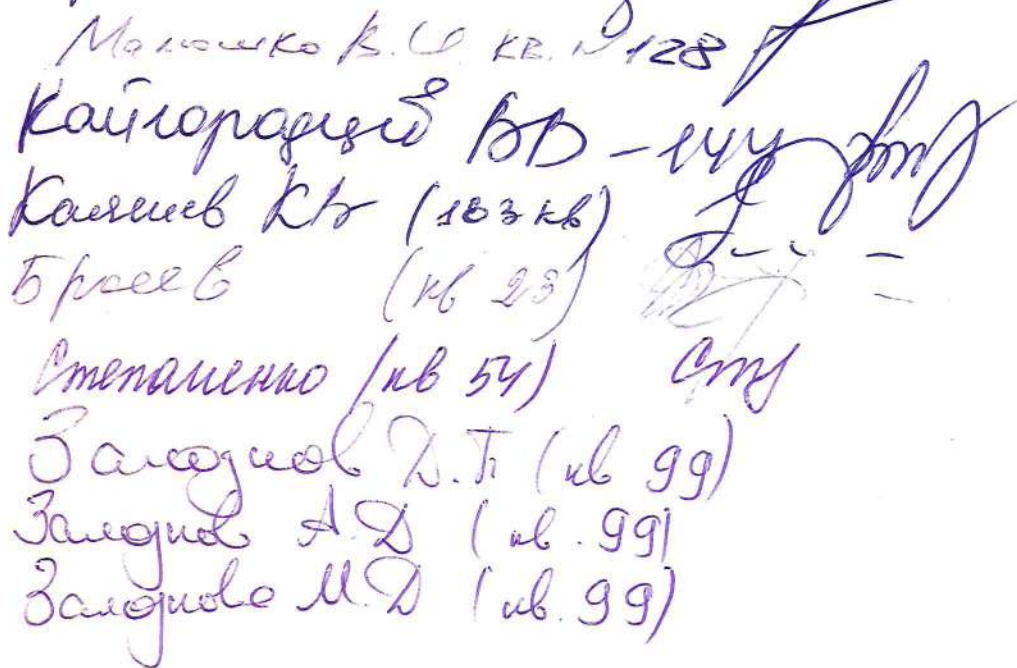 Малошко В.И. кв. №128
Кайгородцев ВВ - 144
Калячев КВ (183 кв)
(кв 23)
Степаненко (кв 54)
Залознов Д.П (кв 99)
Залознов А.Д (кв. 99)
Залознова М.Д (кв. 99)